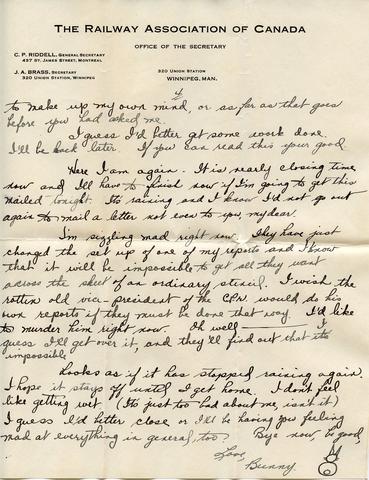 THE RAILWAY ASSOCIATION OF CANADA
OFFICE OF THE SECRETARY
C. P. RIDDELL, GENERAL SECRETARY
437 ST. JAMES STREET, MONTREAL
J. A. BRASS, SECRETARY
320 UNION STATION, WINNIPEG
320 UNION STATION
WINNIPEG, MAN.
4
to make up my own mind, or as far as that goes
before you had asked me.
I guess I'd better get some work done.
I'll be back later. If you can read this your good
Here I am again. It is nearly closing time
now and I'll have to finish now if I'm going to get this
mailed tonight. Its raining and I know I'd not go out
again to mail a letter not even to you my dear.
I'm sizzling mad right now. They have just
changed the set up of one of my reports and I know
that it will be impossible to get all they want
across the sheet of an ordinary stencil. I wish the
rotten old vice-president of the CPR. would do his
own reports if they must be done that way. I'd like
to murder him right now. Oh well — I
guess I'll get over it, and they'll find out that its
impossible
Looks as if it has stopped raining again.
I hope it stays off until I get home. I don't feel
like getting wet. (Its just too bad about me, isn't it)
I guess I'd better close or I'll be having you feeling
mad at everything in general, too. Bye now, be good,
Love,
Bunny.